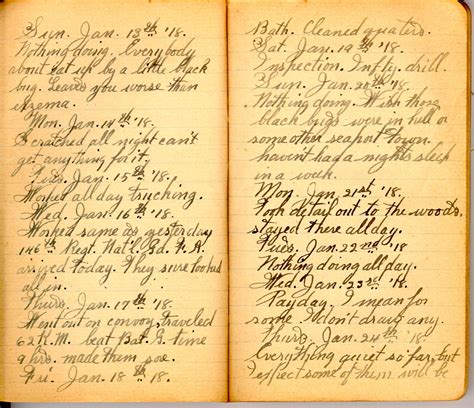 Sun. Jan. 13th '18.
Nothing doing. Everybody
about eat up by a little black
bug. Leaves you worse than
exzema.
Mon. Jan. 14th '18.
Scratched all night can't
get anything for it.
Tues. Jan. 15th '18.
Worked all day trucking.
Wed. Jan. 16th '18.
Worked same as yesterday
146th Regt. Nat'l. Gd. F. A.
arived today. They sure looked
all in.
Thurs. Jan. 17th '18.
Went out on convoy, traveled
62 K.M. beat Bat. G. time
9 hrs. made them sore.
Fri. Jan. 18 '18.
Bath. Cleaned quaters.
Sat. Jan. 19th '18.
Inspection. Inf'ty. drill.
Sun. Jan. 20th '18.
Nothing doing. Wish those
black bugs were in hell or
some other seaport town.
havent had a nights sleep
in a week.
Mon. Jan. 21st '18.
Took detail out to the woods,
stayed there all day.
Tues. Jan. 22nd '18
Nothing doing all day.
Wed. Jan. 23rd '18.
Payday, I mean for
some I don't draw any.
Thurs. Jan. 24th '18.
Everything quiet so far, but
I expect some of them will be